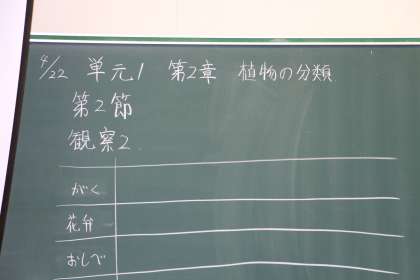 4/22 単元1 第2章 植物の分類
第2節
観察2.
がく
花弁
おしべ